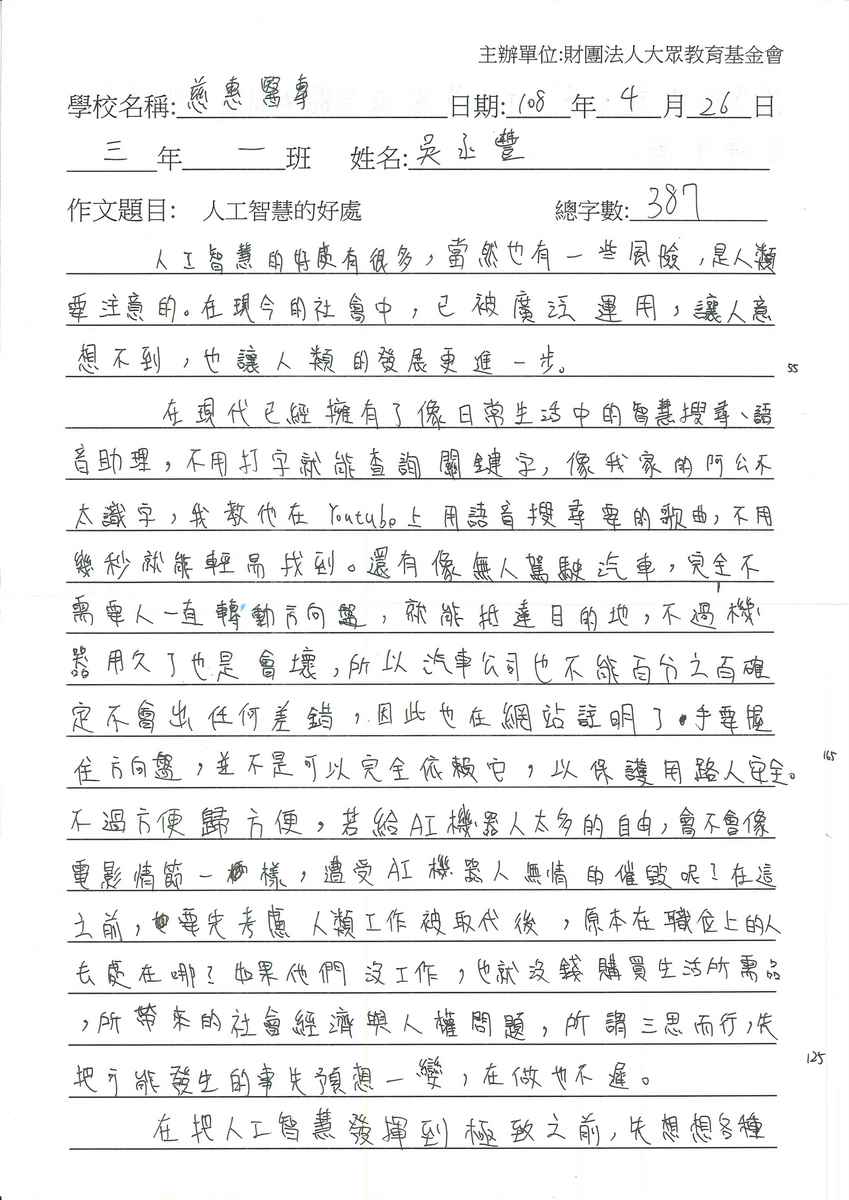 主辦單位:財團法人大眾教育基金會
學校名稱:慈惠醫專 日期:108年4月26日
三年一班 姓名:吳丞豐
作文題目: 人工智慧的好處 總字數:387
人工智慧的好處有很多，當然也有一些風險，是人類
要注意的。在現今的社會中，已被廣泛運用，讓人意
想不到，也讓人類的發展更進一步。
55
在現代已經擁有了像日常生活中的智慧搜尋、語
音助理，不用打字就能查詢關鍵字，像我家的阿公不
太識字，我教他在Youtube上用語音搜尋要的歌曲，不用
幾秒就能輕易找到。還有像無人駕駛汽車，完全不
需要人一直轉動方向盤，就能抵達目的地，不過機
器用久了也是會壞，所以汽車公司也不能百分之百確
定不會出任何差錯，因此也在網站註明了，手要握
住方向盤，並不是可以完全依賴它，以保護用路人安全。
165
不過方便歸方便，若給AI機器人太多的自由，會不會像
電影情節一樣，遭受AI機器人無情的催毀呢？在這
之前，要先考慮人類工作被取代後，原本在職位上的人
去處在哪？如果他們沒工作，也就沒錢購買生活所需品
，所帶來的社會經濟與人權問題，所謂三思而行，先
把可能發生的事先預想一變，在做也不遲。
125
在把人工智慧發揮到極致之前，先想想各種